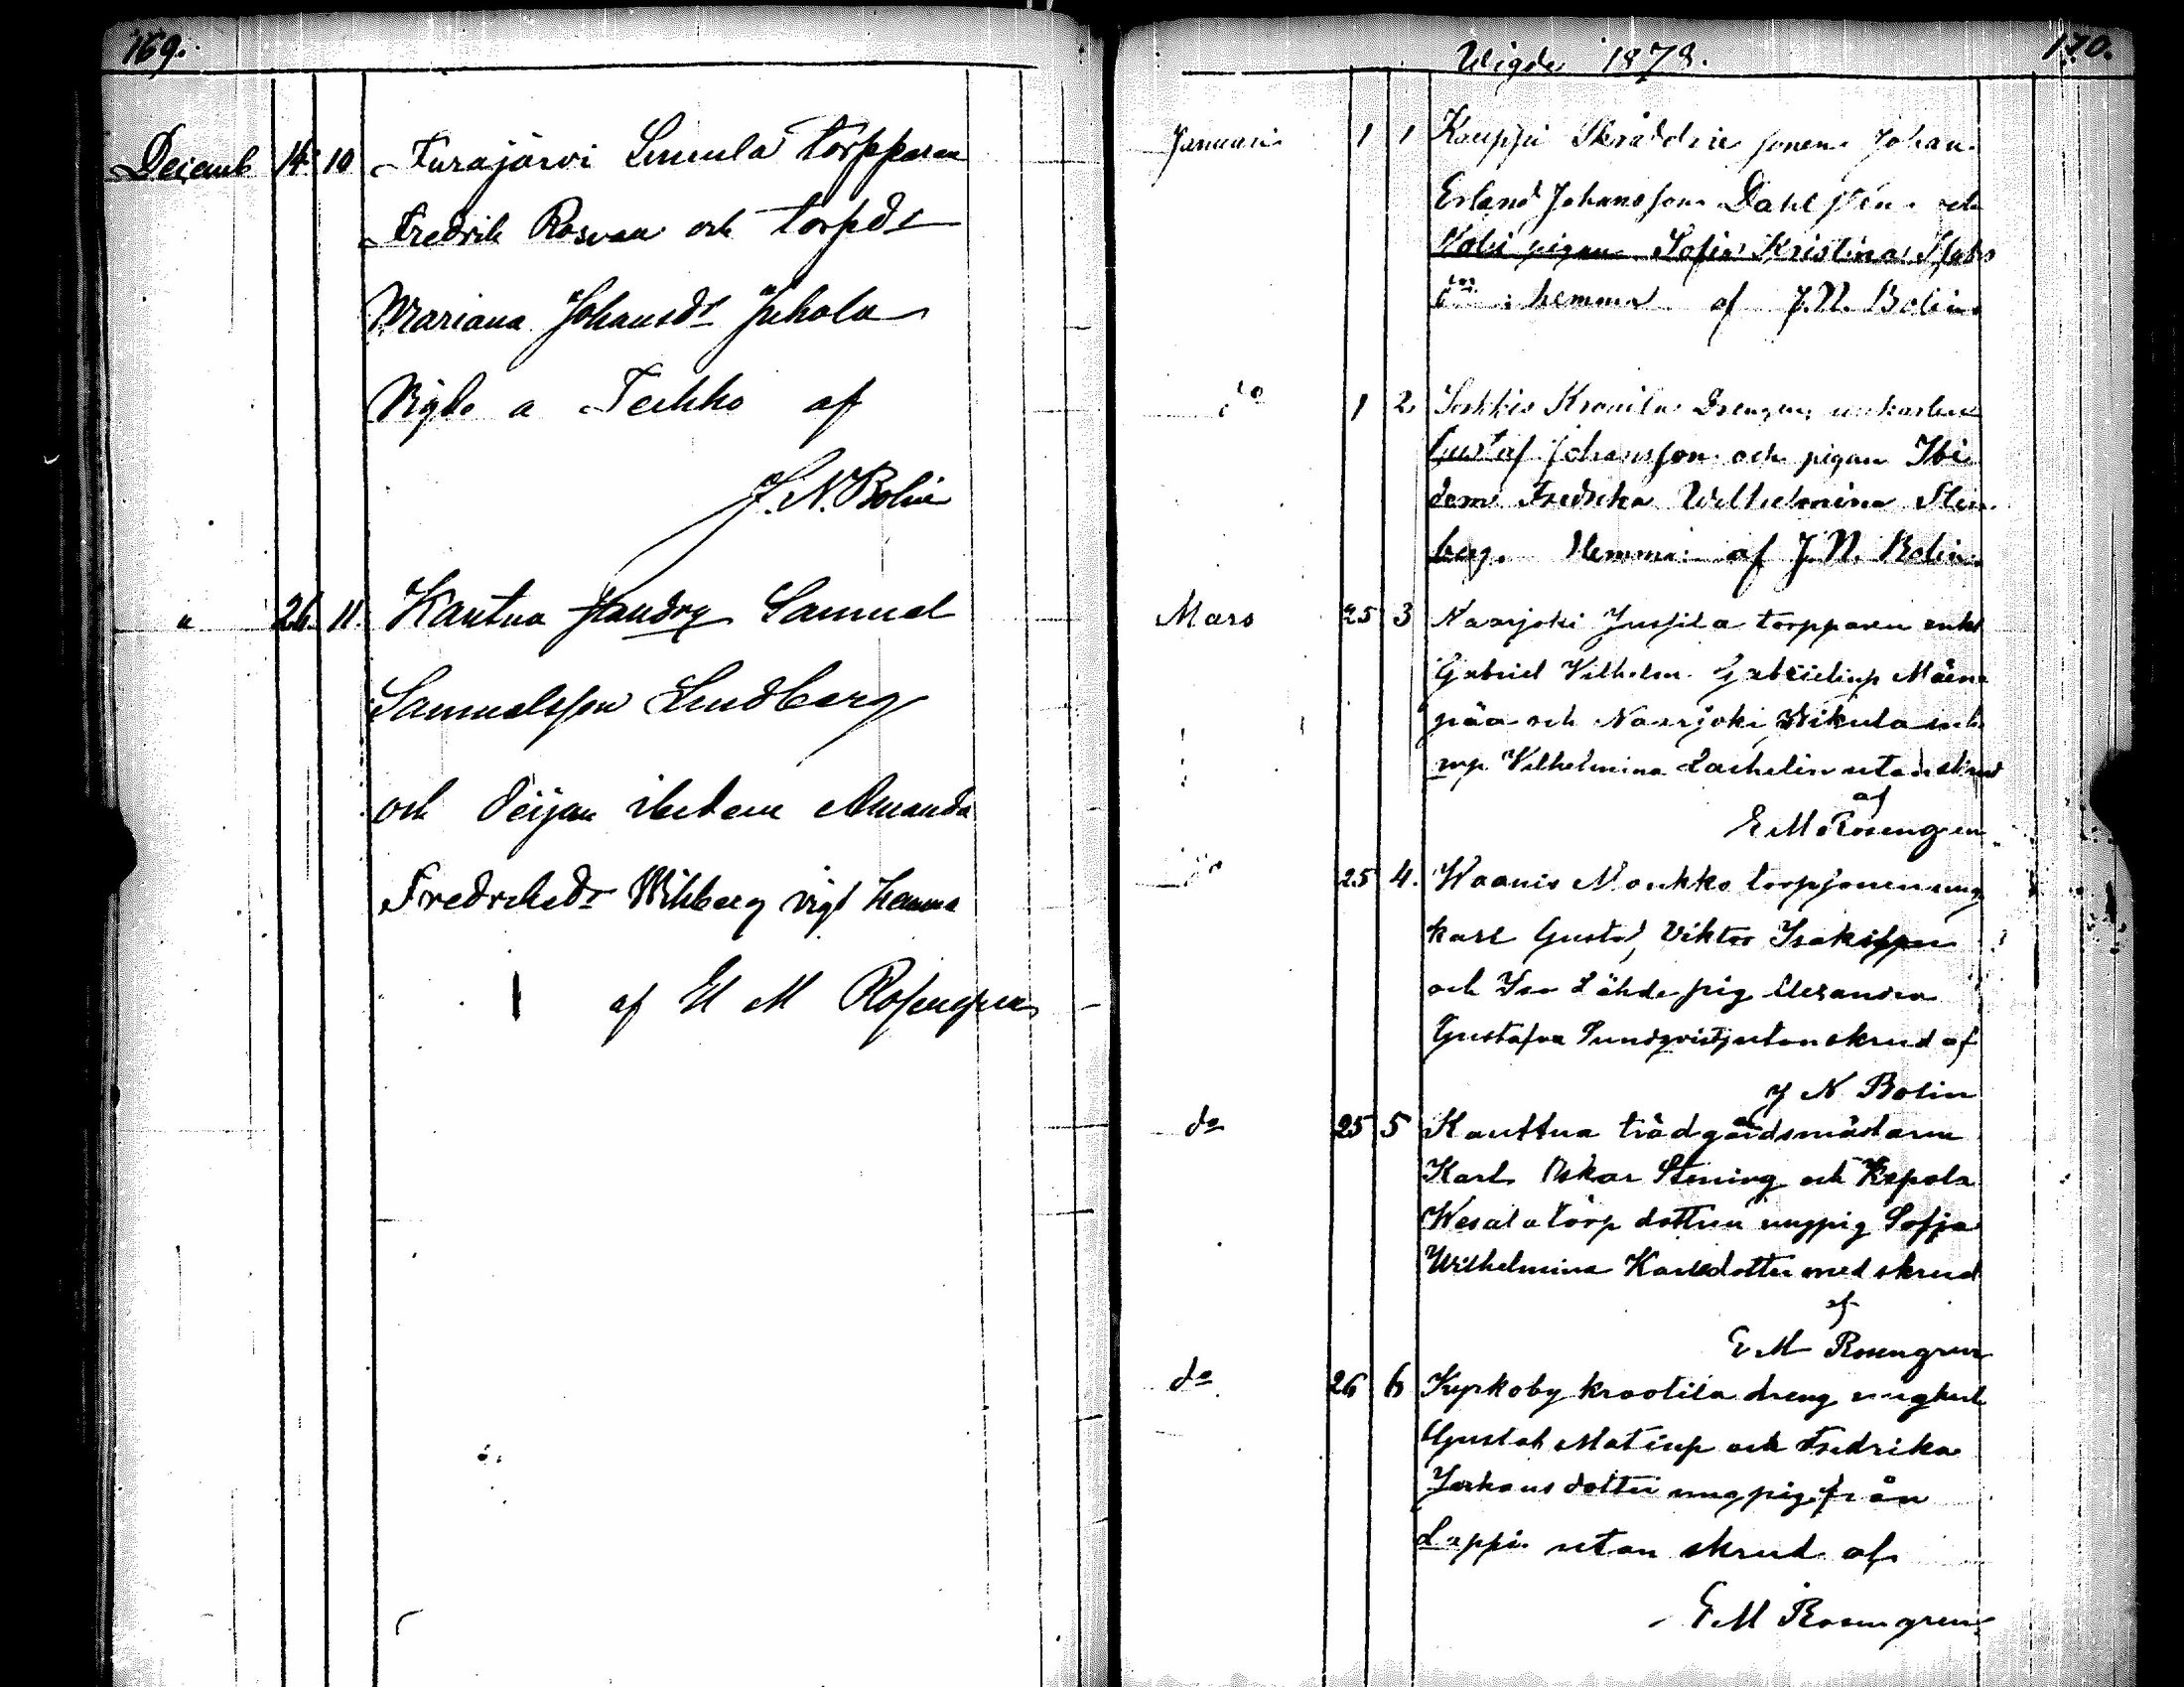 169.
Decemb 14 10 Turajärvi Simula torpparen
Fredrik Rosvan och torpdr
Mariana Johansdr Juhola
Vigde a Teckko af
J. N. Bolin
" 26. 11. Kautua Samuel
Samuelsson Lindberg
och Pigan ibidem Amanda
Fredriksdr Wikberg vigd hemma
af E M Rosengren
Wigde 1878. 170.
Januari 1 1 Kauppi Skräddare sonen Johan
Erland Johansson Dahlsten och
pigan Sofia Kristina
hemma af J. N. Bolin
do 1 2. Drengen
Gustaf Johansson och pigan Ibi
dem Fredrika Wilhelmina Sten
berg. Hemma af J. N. Bolin
Mars 25 3 Naarjoki Jussila torpparen enkl
Gabriel Vilhelm Gabrielssp Mäen
pää och Naarjoki Mikula
Vilhelmina utan skrud
af
E M Rosengren
do 25 4. Waanis Noukko torpsonen ung
karl Gustaf Viktor Isaksson
och Iso Lähde pig Alexandra
Gustafva Sundqvist utan skrud af
J N Bolin
do 25 5 Kauttua trädgårdsmästaren
Karl Oskar Stening och Kepola
Wesala torp dottren ungpig Sofja
Wilhelmina Karlsdotter med skrud
af
E M Rosengren
do 26 6 Kyrkoby kraatila dreng ungkarl
Gustaf Matssp och Fredrika
dotter ungpig från
Lappi utan skrud af
E M Rosengren